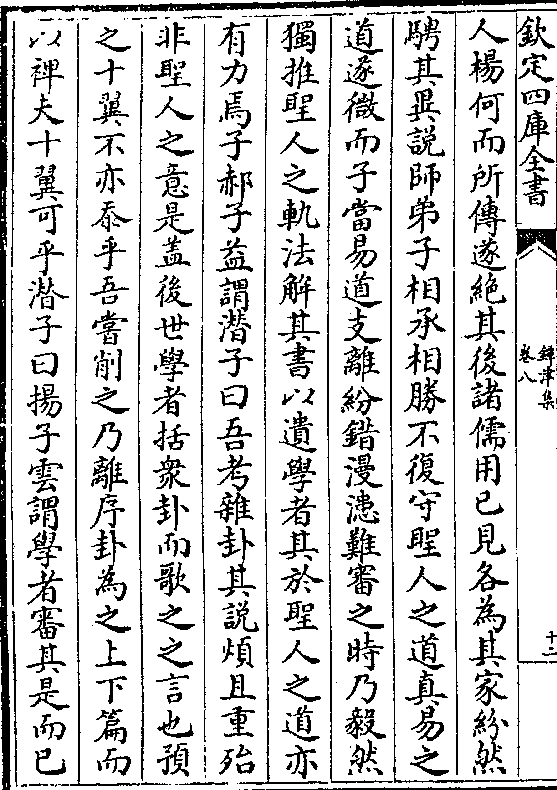 欽定四庫全書
鐔津集
卷八
十二
人楊何而所傳遂絶其後諸儒用已見各為其家紛然
騁其異說師弟子相承相勝不復守聖人之道真易之
道遂微而子當易道支離紛錯漫漶難審之時乃毅然
獨推聖人之軌法解其書以遺學者其於聖人之道亦
有力焉子郝子益謂潛子曰吾考雜卦其說煩且重殆
非聖人之意是盖後世學者括衆卦而歌之之言也預
之十翼不亦忝乎吾嘗削之乃離序卦為之上下篇而
以裨夫十翼可乎潛子曰揚子雲謂學者審其是而已